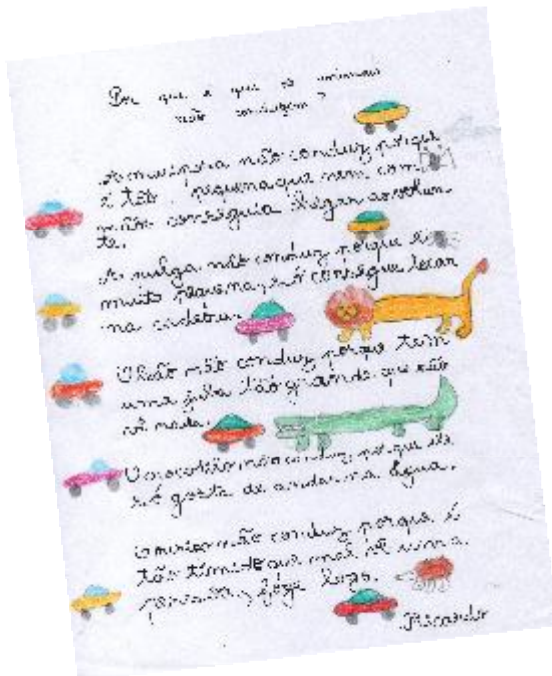 Por que é que os animais
não conduzem?
A mosca não conduz porque
é tão pequena que nem com
conseguia chegar ao volan-
te.
A pulga não conduz porque é
muito pequena, só consegue
na cadeira.
O leão não conduz porque tem
uma juba tão grande que não
vê nada.
O crocodilo não conduz porque ele
só gosta de andar na água.
não conduz porque é
tão tímido que mal vê uma
pessoa, foge logo.
Ricardo